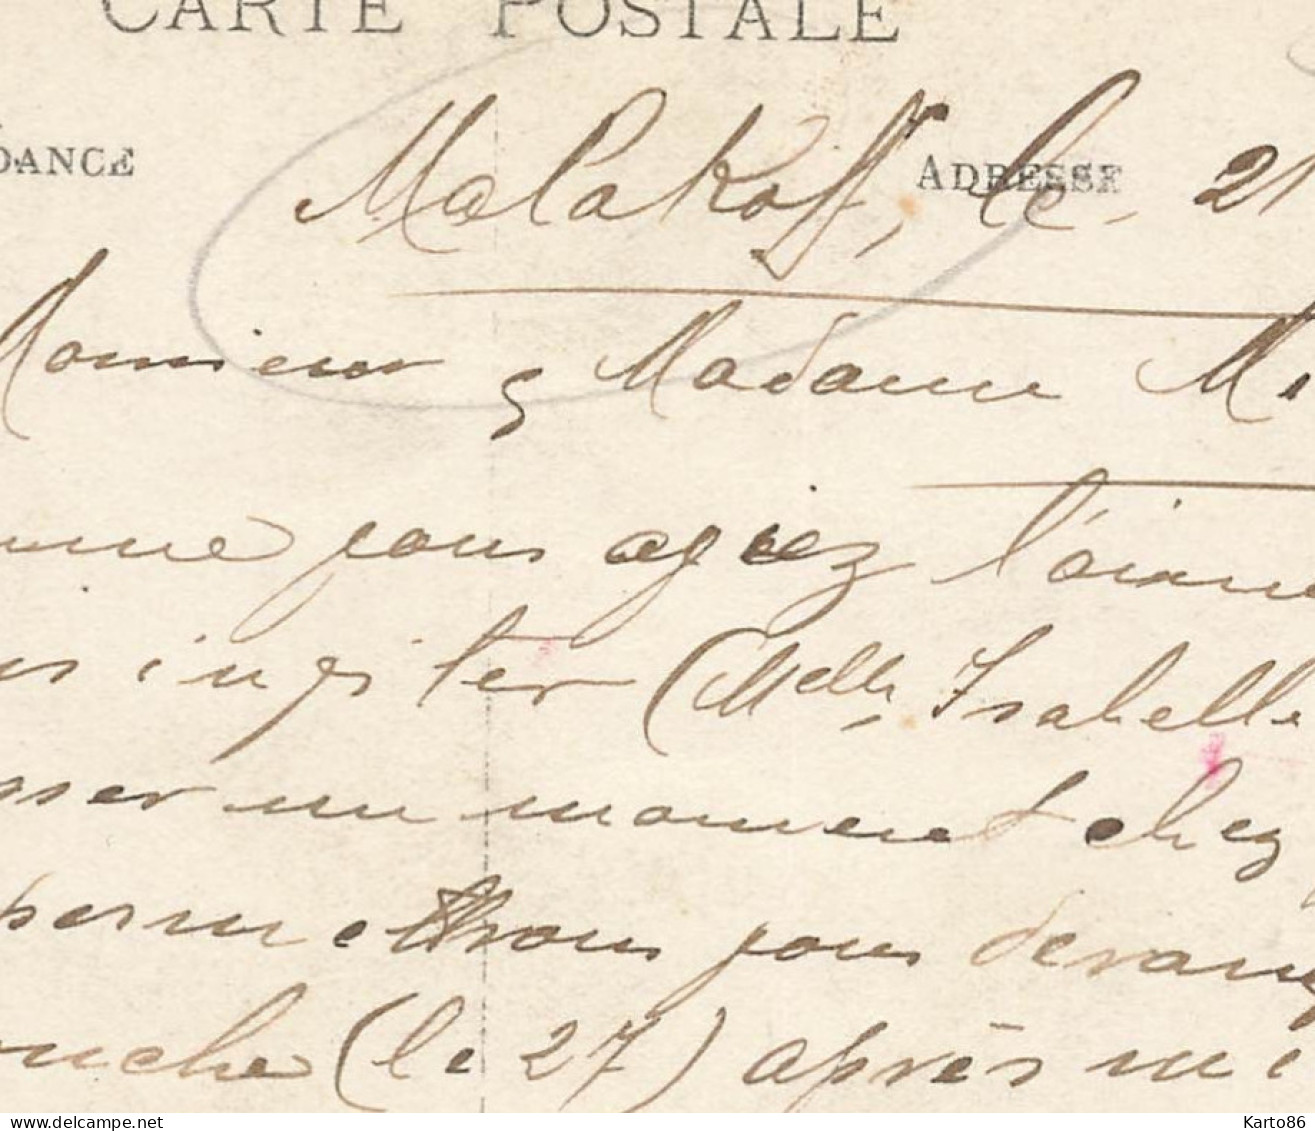 CARTE POSTALE
DANCE
ADRESSE
Malakoff, le 21
Monsieur & Madame Mi
mme vous aviez l'aima
us inviter (Melle Isabelle
sser un moment chez
permettrons vous deran
manche (le 27) après mi
delcampe.net
Karto86